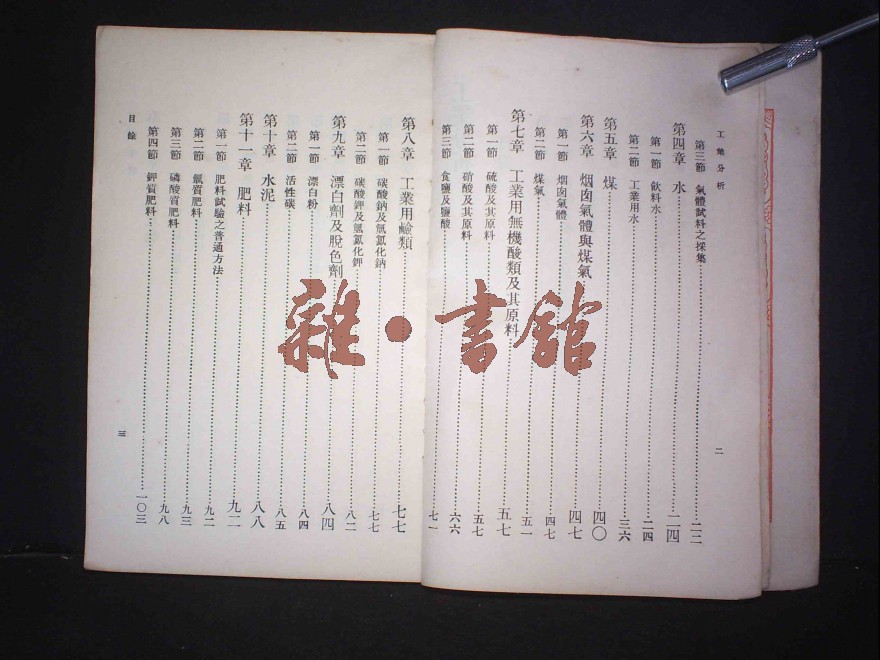 工業分析
第三節 氣體試料之採集……二二
第四章 水……二四
第一節 飲料水……二四
第二節 工業用水……三六
第五章 煤……四〇
第六章 烟囱氣體與煤氣……四七
第一節 烟囱氣體……四七
第二節 煤氣……五一
第七章 工業用無機酸類及其原料……五七
第一節 硫酸及其原料……五七
第二節 硝酸及其原料……六六
第三節 食鹽及鹽酸……七一
二
第八章 工業用鹼類……七七
第一節 碳酸鈉及氫氧化鈉……七七
第二節 碳酸鉀及氫氧化鉀……八二
第九章 漂白劑及脫色劑……八四
第一節 漂白粉……八四
第二節 活性碳……八五
第十章 水泥……八八
第十一章 肥料……九二
第一節 肥料試驗之普通方法……九二
第二節 氮質肥料……九三
第三節 磷酸質肥料……九八
第四節 鉀質肥料……一〇三
目錄
三
雜·書館